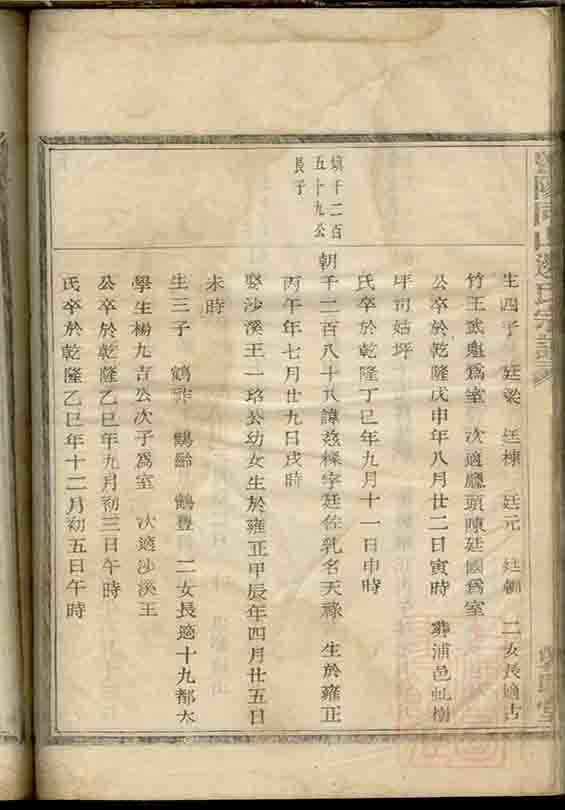 生四子 廷梁 廷棟 廷元 廷朝 二女長適古
竹王武魁爲室 次適廳頭陳廷國爲室
公卒於乾隆戊申年八月廿二日寅時 葬浦邑虬樹
坪司姑坪
氏卒於乾隆丁巳年九月十一日申時
填千二百
五十九公
長子
朝千二百八十八諱茲樑字廷佐乳名天祿 生於雍正
丙午年七月廿九日戌時
娶沙溪王一珞公幼女生於雍正甲辰年四月廿五日
未時
生三子 鶴祚 鶴齡 鶴豊 二女長適十九都大
學生楊九吉公次子爲室 次適沙溪王
公卒於乾隆乙巳年九月初三日午時
氏卒於乾隆乙巳年十二月初五日午時